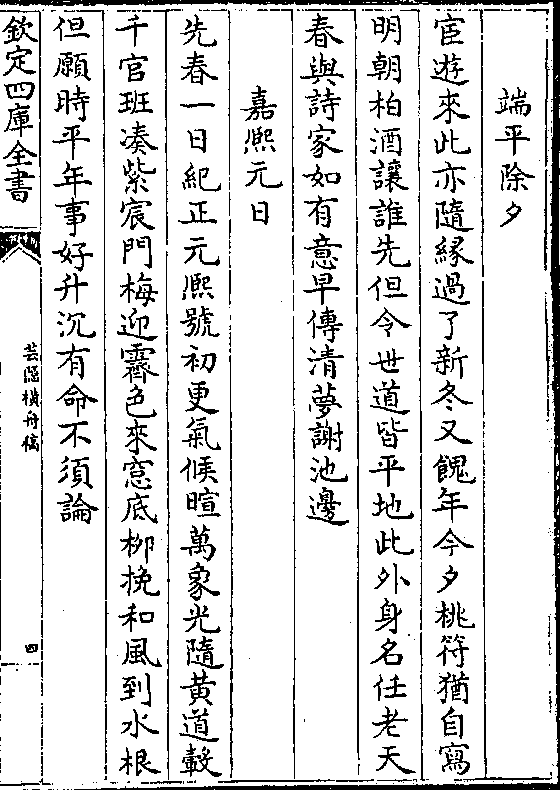 端平除夕
宦遊來此亦隨緣過了新冬又餽年今夕桃符猶自寫
明朝柏酒讓誰先但令世道皆平地此外身名任老天
春與詩家如有意早傳清夢謝池邊
嘉熙元日
先春一日紀正元熙號初更氣候暄萬象光隨黃道轂
千官班凑紫宸門梅迎霽色來窓底柳挽和風到水根
但願時平年事好升沉有命不須論
欽定四庫全書
芸隱橫舟稿
四